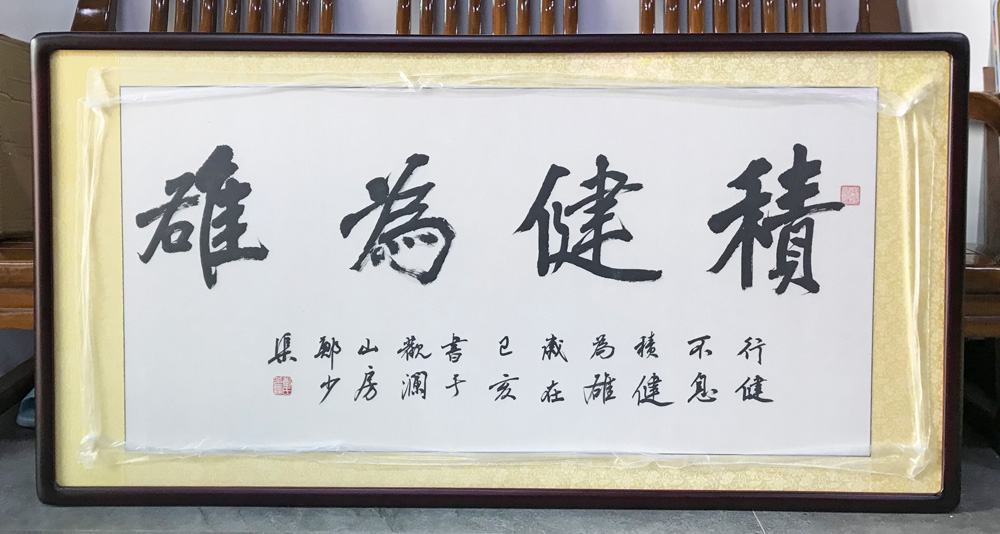 積健為雄
行健
不息
積健
為雄
歲在
己亥
書于
觀瀾
山房
鄭少
渠